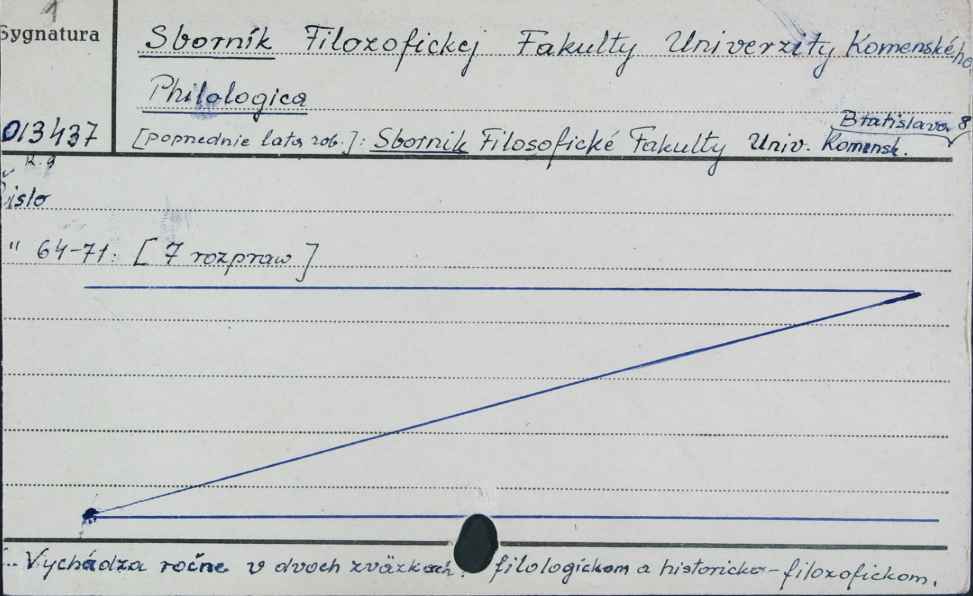 1
Sygnatura
Sborník Filozofickej Fakulty Univerzity Komenského,
Philologica
Bratislava, 8
013437
[poprzednie lata rob.]: Sborník Filosofické Fakulty Univ. Komensk.
R. 9
Číslo
" 64-71: [7 rozpraw]
Vychádza ročne v dvoch zväzkoch: filologickom a historicko-filozofickom.